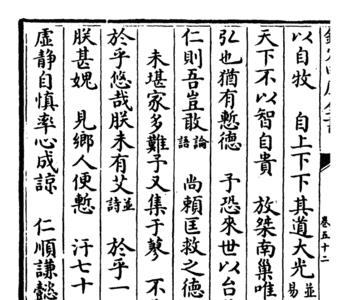 卷五十二
以自牧　自上下下其道大光易並
天下不以智自貴　放桀南巢唯
弘也猶有慙德　予恐來世以台
仁則吾豈敢論語　尚賴匡救之德
未堪家多難予又集于蓼　不
於乎悠哉朕未有艾並詩　於乎一
朕甚媿　見鄉人便慙　汗七十
虛静自慎率心成諒　仁順謙懿